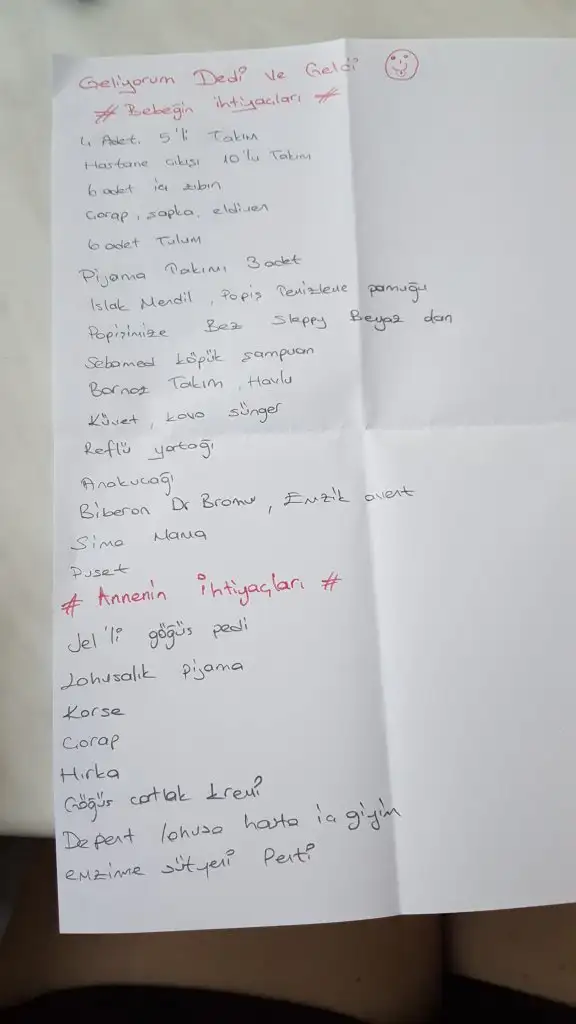 Geliyorum Dedi ve Geldi
# Bebeğin ihtiyaçları #
4 Adet. 5'li Takım
Hastane çıkışı 10'lu Takım
6 adet iç zıbın
Çorap, şapka, eldiven
6 adet Tulum
Pijama Takımı 3 adet
Islak Mendil, Popiş Temizleme pamuğu
Popişimize Bez Sleppy Beyaz dan
Sebamed köpük şampuan
Bornoz Takım, Havlu
Küvet, kova sünger
Reflü yatağı
Anakucağı
Biberon Dr Brown, Emzik avent
Sima Mama
Puset
# Annenin İhtiyaçları #
Jel'li göğüs pedi
Lohusalık pijama
Korse
Çorap
Hırka
Göğüs çatlak kremi
Depent lohusa hasta iç giyim
emzirme sütyeni Penti